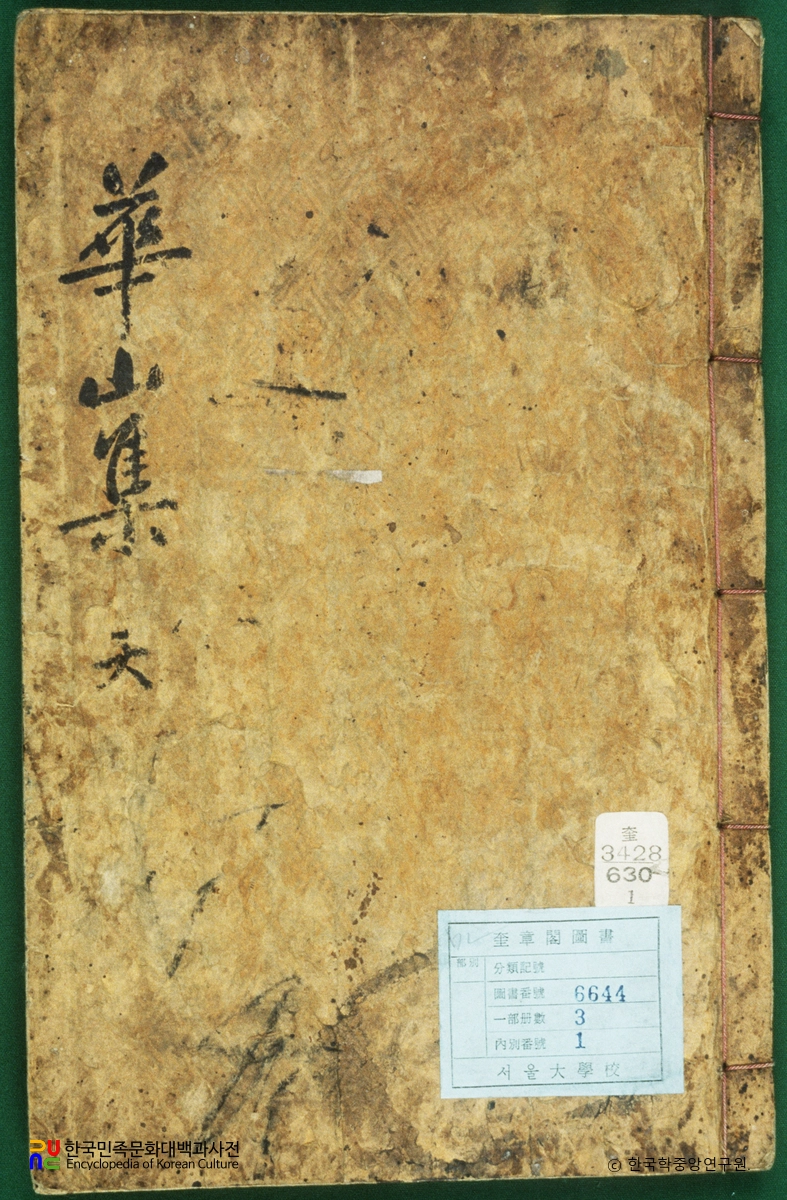 華山集 天
奎
3428
630
1
奎章閣圖書
部別
分類記號
圖書番號 6644
一部册數 3
內別番號 1
서울大學校
한국민족문화대백과사전
Encyclopedia of Korean Culture
© 한국학중앙연구원